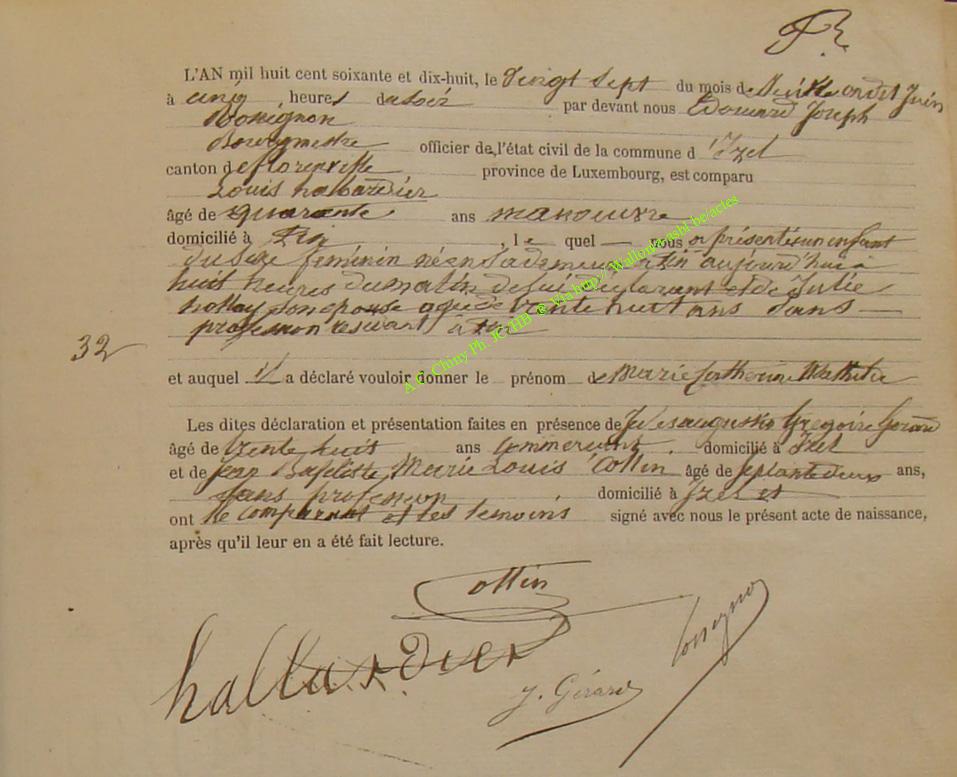 L'AN mil huit cent soixante et dix-huit, le Vingt Sept du mois de Juin
à cinq heures du soir par devant nous Edouard Joseph
Rossignon
Bourgmestre officier de l'état civil de la commune d'Izel
canton de florenville province de Luxembourg, est comparu
Louis habardier
âgé de quarante ans manoeuvre
domicilié à Pin, le quel nous a présenté un enfant
du sexe féminin né en sa demeure à Pin aujourd'hui à
huit heures du matin de lui déclarant et de Julie
son épouse agée de trente huit ans sans
profession résidant à Pin
32
et auquel il a déclaré vouloir donner le prénom de Marie Catherine Mathilde
Les dites déclaration et présentation faites en présence de Jules augustin Gregoire Gerard
âgé de trente huit ans commercant domicilié à Izel
et de Jean Baptiste Marie Louis Collin âgé de septante deux ans,
sans profession domicilié à Izel et
ont le comparant et les temoins signé avec nous le présent acte de naissance,
après qu'il leur en a été fait lecture.
Collin
hallardier
J. Gérard
A.C. Chiny Ph. JC HB © Via http:// Wallonia asbl be/actes